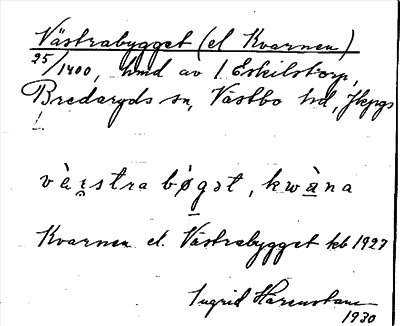 Västrabygget (el Kvarnen)
25/1400, hmd av 1 Eskilstorp,
Bredaryds sn, Västbo hd, Jkpgs
l
vè̀ʂstra bøgət, kwàna
Kvarnen el. Västrabygget kb 1927
Ingrid Harenstam
1930